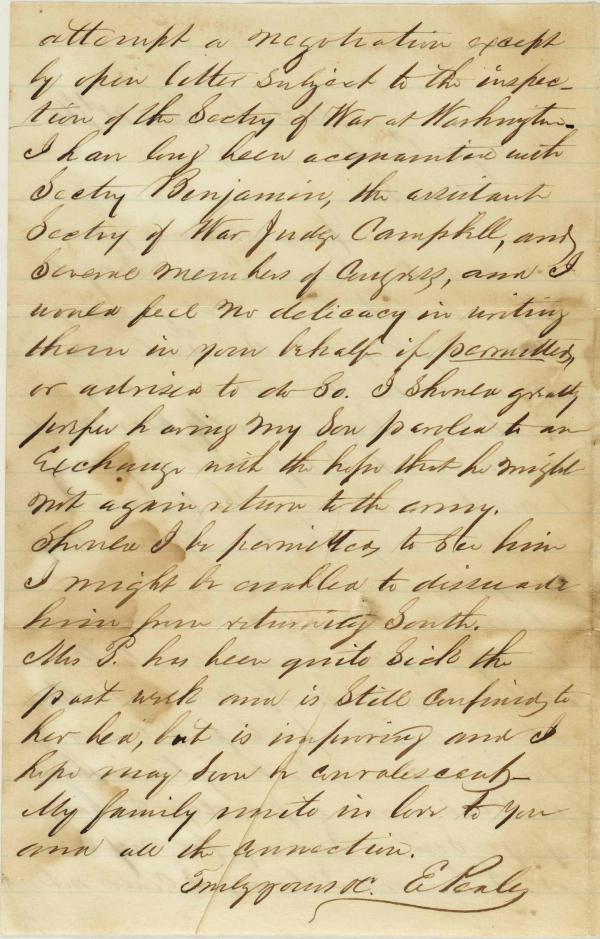 attempt a negotiation except
by open letter subject to the inspec-
tion of the Secty of War at Washington.
I have long been acquainted with
Secty Benjamin, the assistant
Secty of War Judge Campbell, and
several members of Congress, and I
would feel no delicacy in writing
them in your behalf if permitted,
or advised to do so. I should greatly
prefer having my Son paroled to an
Exchange with the hope that he might
not again return to the army.
Should I be permitted to see him
I might be enabled to dissuade
him from returning South.
Mrs P. has been quite sick the
past week and is still confined to
her bed, but is improving and I
hope may soon be convalescent-
My family unite in love to you
and all the connection.
Truly yours &c. E Penley